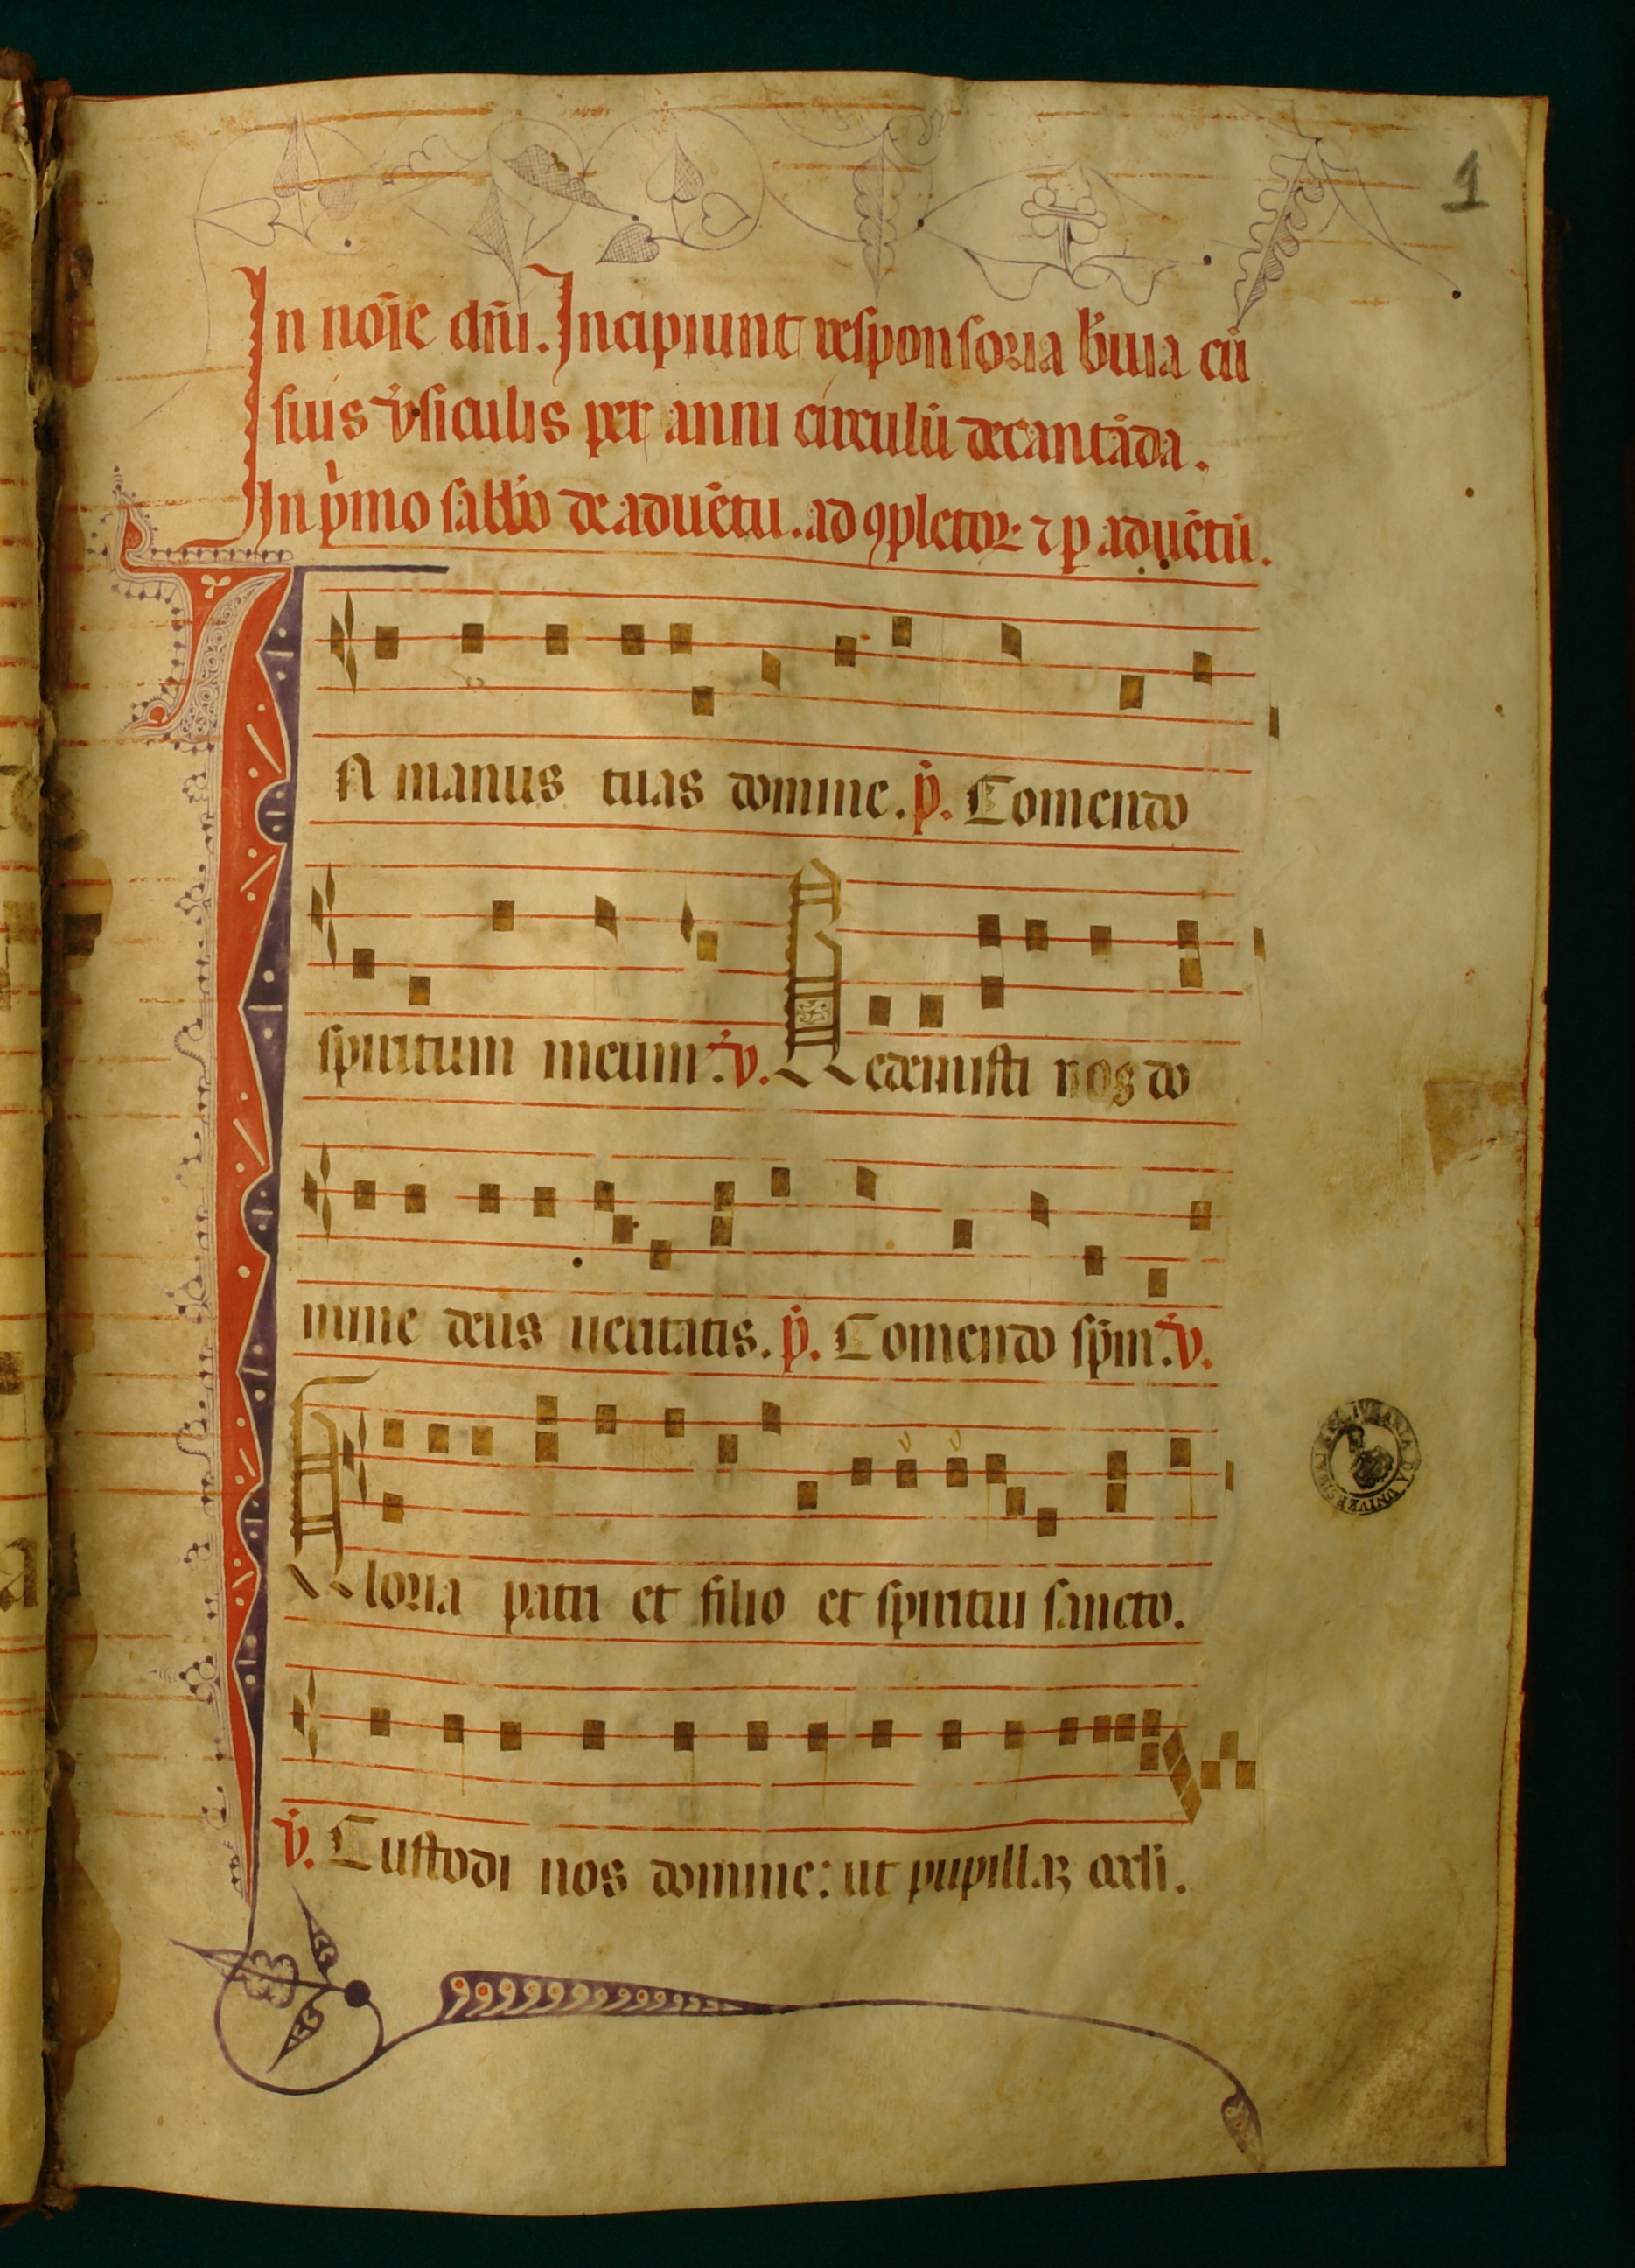 1
In noīe dn̄i. Incipiunt responsoria b̄uia cū
suis v̓siculis per anni circulū decantāda.
In p̍mo sabb̓o de aduētu. ad ꝯpletoꝝ ⁊ ꝑ aduētū.
IN manus tuas domine. p̍. Comendo
spiritum meum. v̍. Redemisti nos do
mine deus ueritatis. p̍. Comendo sp̄m. v̍.
Gloria patri et filio et spiritui sancto.
v̍. Custodi nos domine: ut pupillaꝫ oculi.